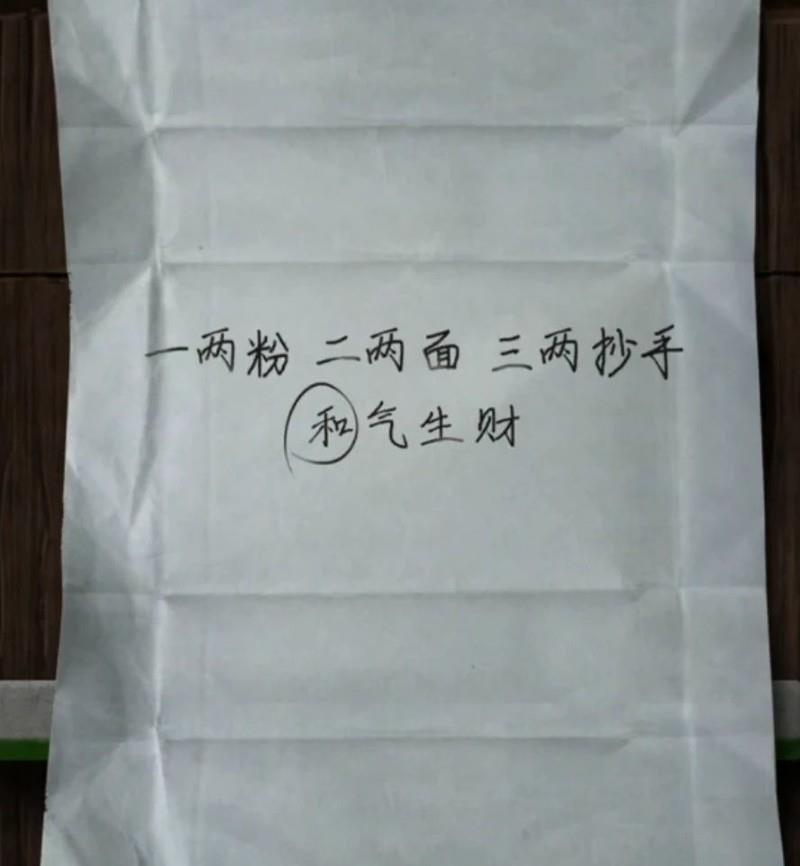 一两粉 二两面 三两抄手
和气生财